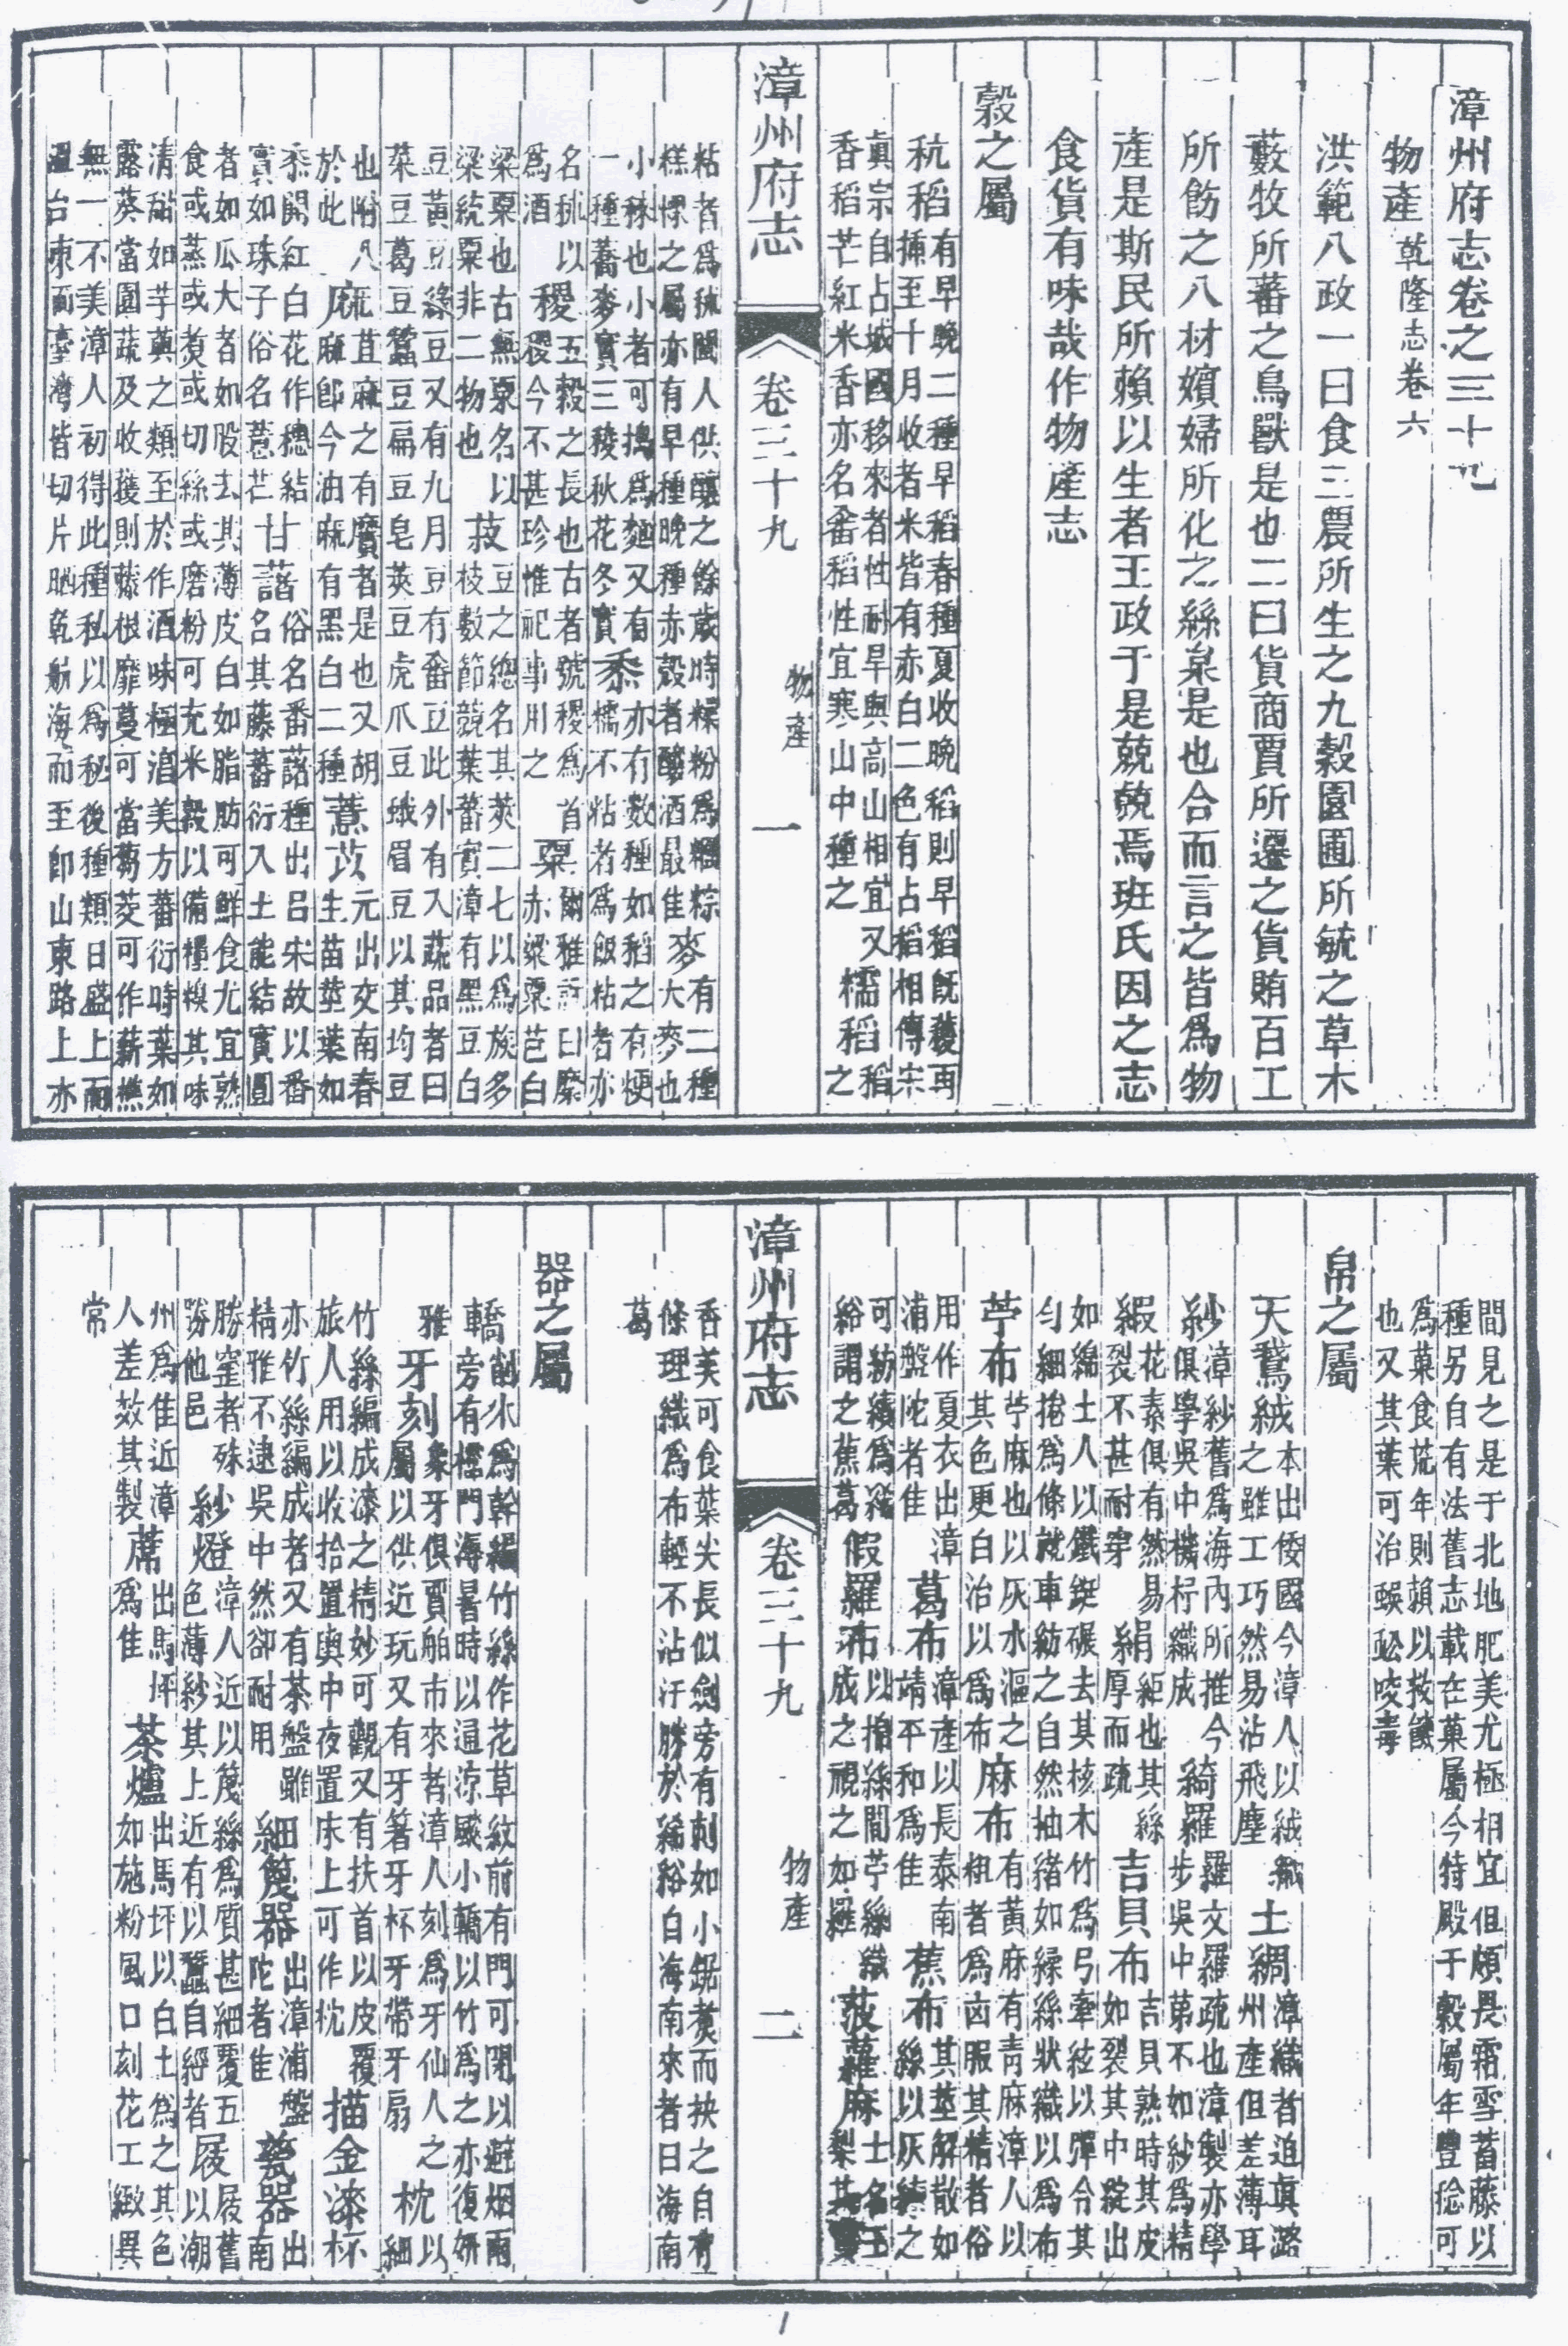 漳州府志卷之三十九
物產乾隆志卷六
洪範八政一曰食三農所生之九穀園圃所毓之草木
藪牧所蕃之鳥獸是也二曰貨商賈所遷之貨賄百工
所飭之八材嬪婦所化之絲枲是也合而言之皆爲物
產是斯民所賴以生者王政于是兢兢焉班氏因之志
食貨有味哉作物產志
穀之屬
秔稻有早晚二種早稻春種夏收晚稻則早稻旣穫再
插至十月收者米皆有赤白二色有占稻相傳宋
眞宗自占城國移來者性耐旱與高山相宜又稻
香稻芒紅米香亦名畬稻性宜寒山中種之糯稻之
漳州府志
卷三十九
物產
一
粘者爲秫閩人供釀之餘歲時糉粉爲糍粽麥有二種
糕粿之屬亦有早種晚種赤殼者釀酒最佳大麥也
小秣也小者可擣爲麵又有數種如稻之有粳
一種蕎麥實三稜秋花冬實黍亦糯不粘者爲飯粘者亦
名秫以稷五穀之長也古者號稷爲首粟爾雅註曰縻
爲酒稷今不甚珍惟祀事用之赤粱粟芑白
粱粟也古無粟名以菽豆之總名其莢二七以爲族多
粱統粟非二物也枝數節競葉蕃實漳有黑豆白
豆黃豆綠豆又有九月豆有畬豆此外有入蔬品者曰
菜豆葛豆蠶豆扁豆皂莢豆虎爪豆蛾眉豆以其均豆
也附八麻苴麻之有蕡者是也又胡薏苡元出交南春
於此麻卽今油麻有黑白二種生苗莖葉如
黍開紅白花作穗結甘藷俗名番藷種出呂宋故以番
實如珠子俗名薏芒名其藤蕃衍入土能結實圓
者如瓜大者如股去其薄皮白如脂肪可鮮食尤宜熟
食或蒸或煑或切絲或磨粉可充米穀以備糧糗其味
清甜如芋薁之類至於作酒味極滔美方蕃衍時葉如
露葵當園蔬及收穫則藤根靡蔓可當芻茭可作薪樵
無一不美漳人初得此種私以爲秘後種類日盛上而
溫台東面臺灣皆切片晒乾航海而至卽山東路上亦
間見之是于北地肥美尤極相宜但頗畏霜雪蓄藤以
種另自有法舊志載在菓屬今特殿于穀屬年豐稔可
爲菓食荒年則賴以救饑
也又其葉可治蜈蚣咬毒
帛之屬
天鵞絨本出倭國今漳人以絨織土綢漳織者迫眞潞
之雖工巧然易沾飛塵州產但差薄耳
紗漳紗舊爲海內所推今綺羅羅文羅疏也漳製亦學
俱學吳中機杼織成步吳中第不如紗爲精
緞花素俱有然易絹絹也其絲吉貝布吉貝熟時其皮
裂不甚耐穿厚而疏如裂其中綻出
如綿土人以鐵鋌碾去其核木竹爲弓牽絃以彈令其
勻細捲爲條就車紡之自然抽緒如繰絲狀織以爲布
苧布苧麻也以灰水漚之麻布有黃麻有青麻漳人以
其色更白治以爲布粗者爲凶服其精者俗
用作夏衣出漳葛布漳產以長泰南蕉布其莖解散如
浦盤陀者佳靖平和爲佳絲以灰練之
可紡績爲絺假羅布以捎絲間苧絲織菠蘿麻士名王
綌謂之蕉葛成之視之如羅梨其實
漳州府志
卷三十九
物產
二
香美可食葉尖長似劍旁有刺如小鋸煑而抉之自有
條理織爲布輕不沾汗勝於絺綌白海南來者曰海南
葛
器之屬
轎削木爲幹編竹絲作花草紋前有門可閉以避烟雨
旁有櫺門海暑時以通涼颸小轎以竹爲之亦復妍
雅牙刻象牙俱賈舶市來者漳人刻爲牙仙人之枕以
屬以供近玩又有牙箸牙杯牙帶牙扇細
竹絲編成漆之精妙可觀又有扶首以皮覆描金漆杯
旅人用以收拾置輿中夜置床上可作枕
亦竹絲編成者又有茶盤雖細篾器出漳浦盤甆器出
精雅不逮吳中然卻耐用陀者佳南
勝窰者殊紗燈漳人近以篾絲爲質甚細覆五屐屐舊
勝他邑色薄紗其上近有以蠶自經者以潮
州爲佳近漳蓆出馬坪茶爐出馬坪以白土爲之其色
人差效其製爲佳如施粉風口刻花工緻異
常